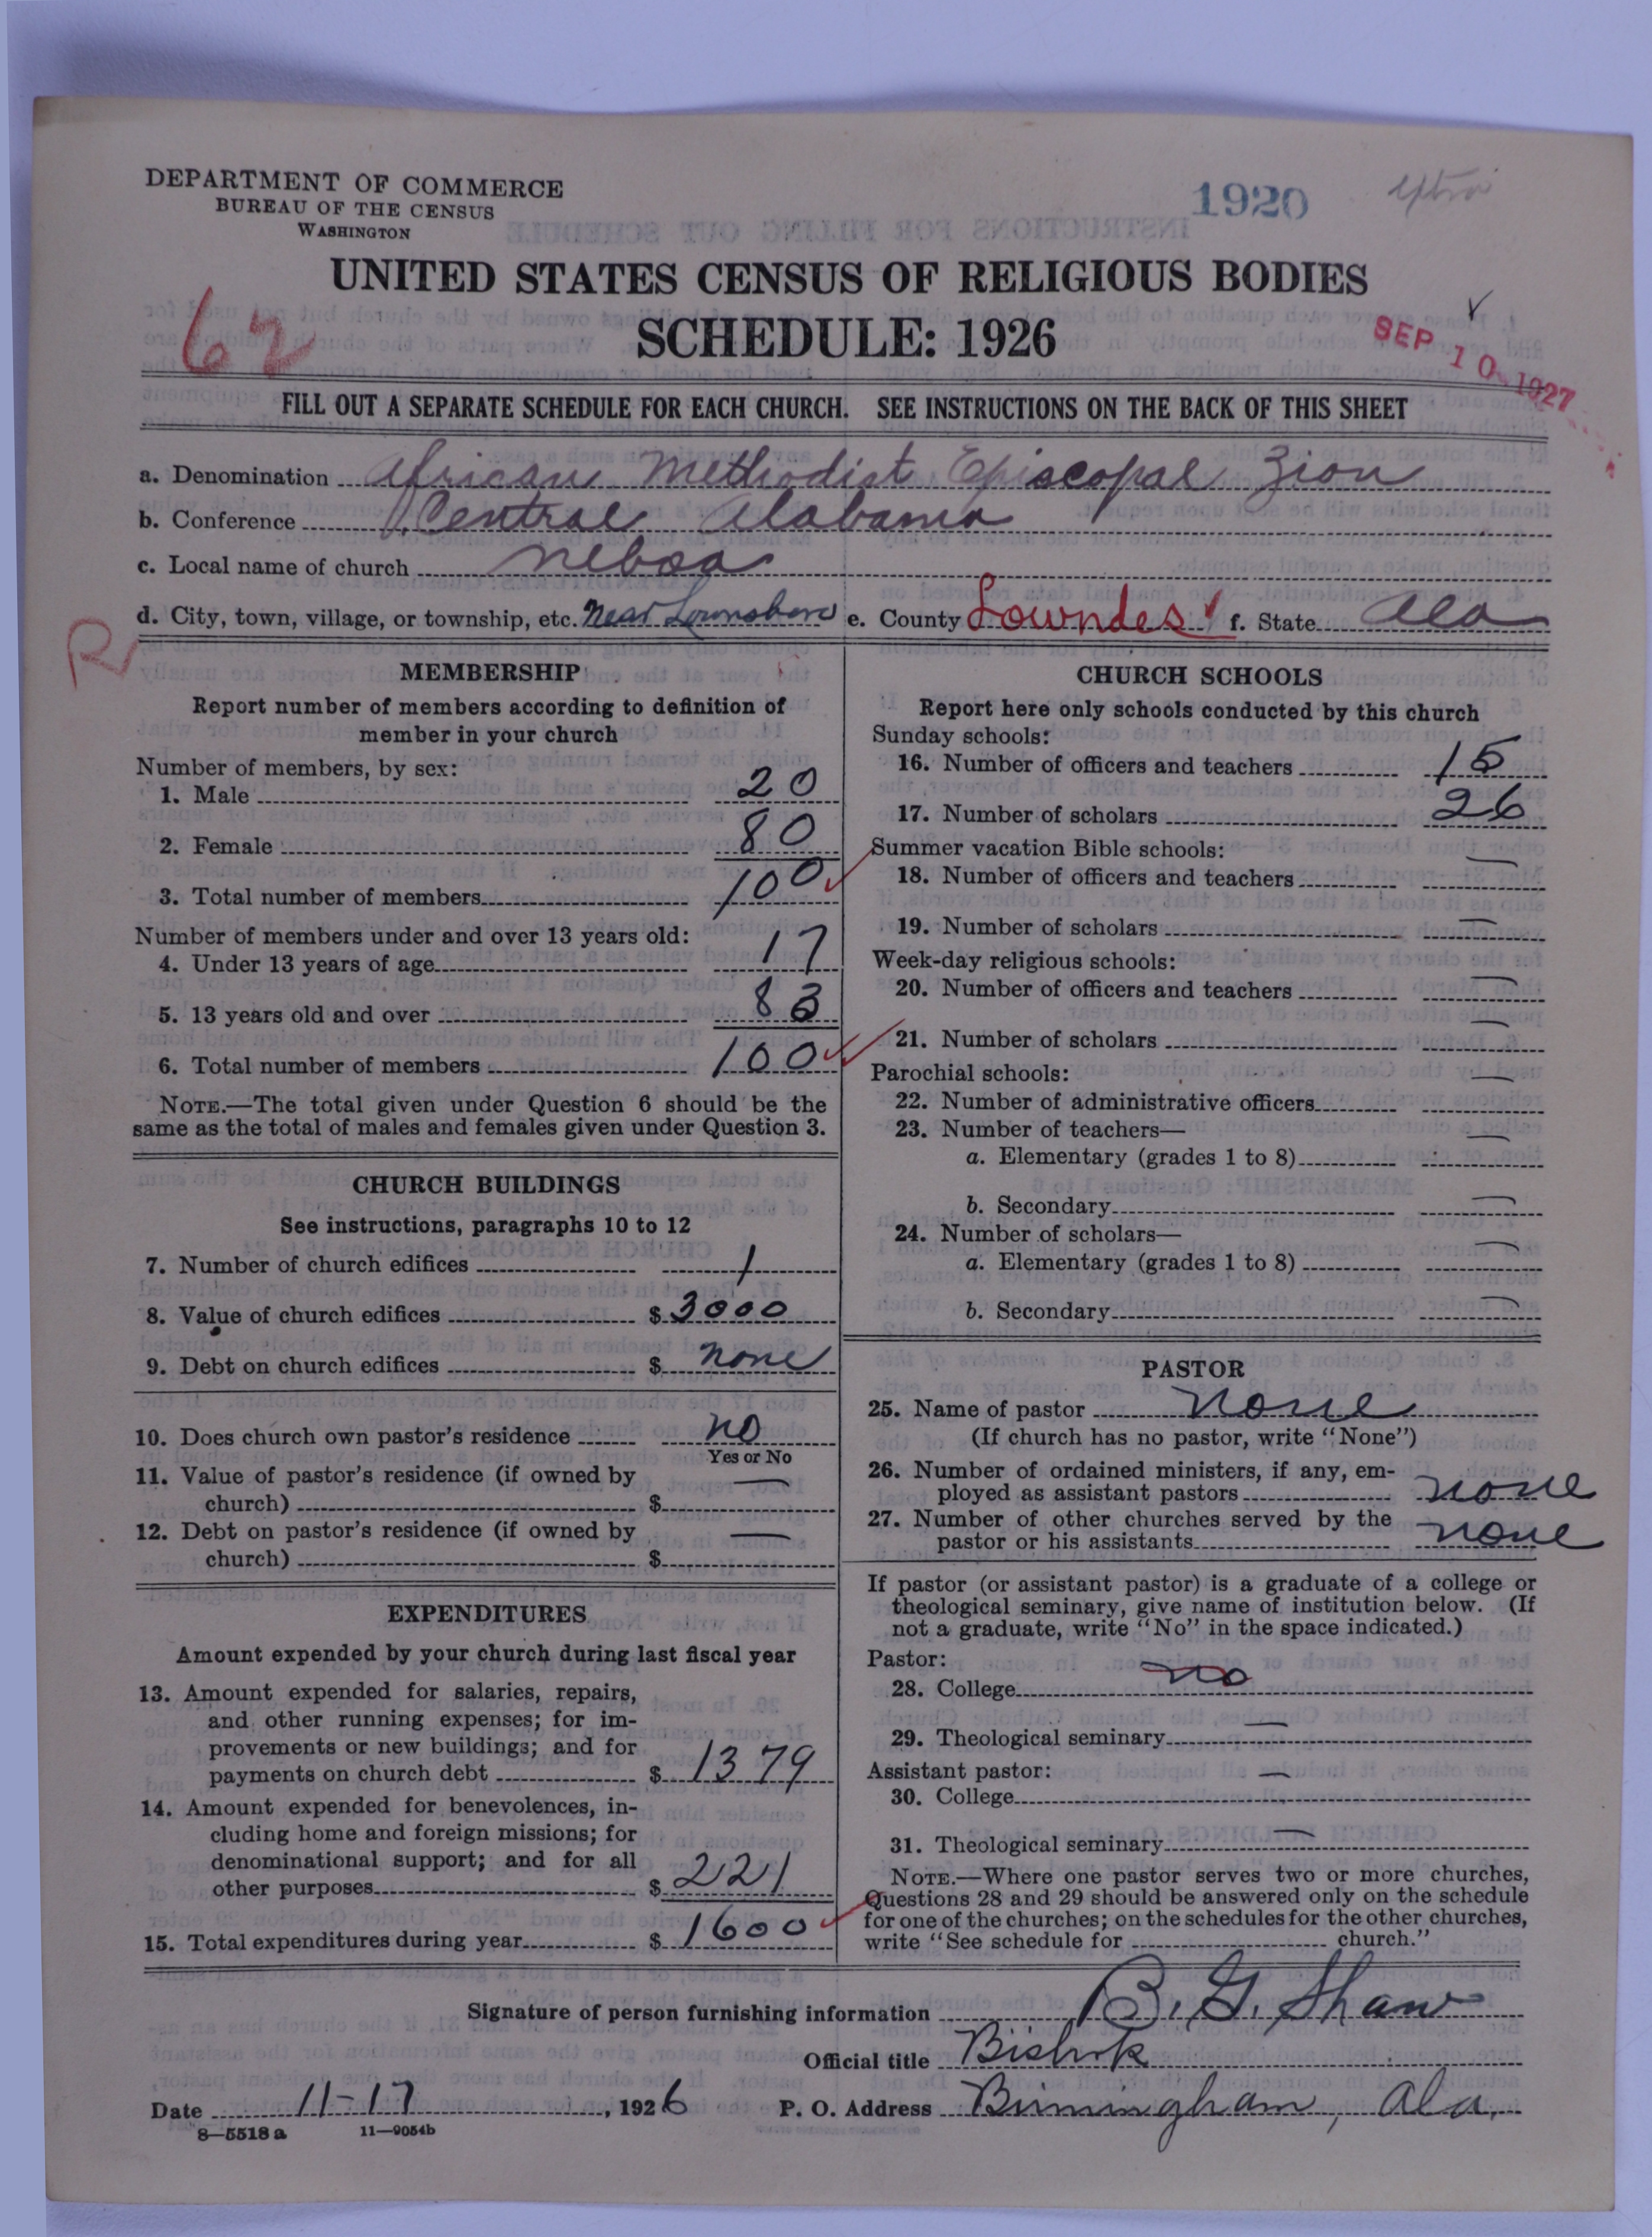 DEPARTMENT OF COMMERCE
BUREAU OF THE CENSUS
WASHINGTON
1920
UNITED STATES CENSUS OF RELIGIOUS BODIES
SCHEDULE: 1926
62
SEP 10 1927
FILL OUT A SEPARATE SCHEDULE FOR EACH CHURCH. SEE INSTRUCTIONS ON THE BACK OF THIS SHEET
a. Denomination African Methodist Episcopal Zion
b. Conference Central Alabama
c. Local name of church Neboa
d. City, town, village, or township, etc. Near Lownsboro e. County Lowndes f. State Ala
R
MEMBERSHIP
Report number of members according to definition of
member in your church
Number of members, by sex:
1. Male 20
2. Female 80
3. Total number of members 100
Number of members under and over 13 years old:
4. Under 13 years of age 17
5. 13 years old and over 83
6. Total number of members 100
NOTE.—The total given under Question 6 should be the
same as the total of males and females given under Question 3.
CHURCH BUILDINGS
See instructions, paragraphs 10 to 12
7. Number of church edifices 1
8. Value of church edifices $ 3000
9. Debt on church edifices $ none
10. Does church own pastor's residence no
Yes or No
11. Value of pastor's residence (if owned by
church) $ —
12. Debt on pastor's residence (if owned by
church) $ —
EXPENDITURES
Amount expended by your church during last fiscal year
13. Amount expended for salaries, repairs,
and other running expenses; for im-
provements or new buildings; and for
payments on church debt $ 1379
14. Amount expended for benevolences, in-
cluding home and foreign missions; for
denominational support; and for all
other purposes $ 221
15. Total expenditures during year $ 1600
CHURCH SCHOOLS
Report here only schools conducted by this church
Sunday schools:
16. Number of officers and teachers 15
17. Number of scholars 26
Summer vacation Bible schools:
18. Number of officers and teachers —
19. Number of scholars —
Week-day religious schools:
20. Number of officers and teachers —
21. Number of scholars —
Parochial schools:
22. Number of administrative officers —
23. Number of teachers—
a. Elementary (grades 1 to 8) —
b. Secondary —
24. Number of scholars—
a. Elementary (grades 1 to 8) —
b. Secondary —
PASTOR
25. Name of pastor none
(If church has no pastor, write "None")
26. Number of ordained ministers, if any, em-
ployed as assistant pastors none
27. Number of other churches served by the
pastor or his assistants none
If pastor (or assistant pastor) is a graduate of a college or
theological seminary, give name of institution below. (If
not a graduate, write "No" in the space indicated.)
Pastor:
28. College no
29. Theological seminary —
Assistant pastor:
30. College —
31. Theological seminary —
NOTE.—Where one pastor serves two or more churches,
Questions 28 and 29 should be answered only on the schedule
for one of the churches; on the schedules for the other churches,
write "See schedule for church."
Signature of person furnishing information B. G. Shaw
Official title Bishop
Date 11-17, 1926 P. O. Address Birmingham, Ala.
8—5518a 11—9054b